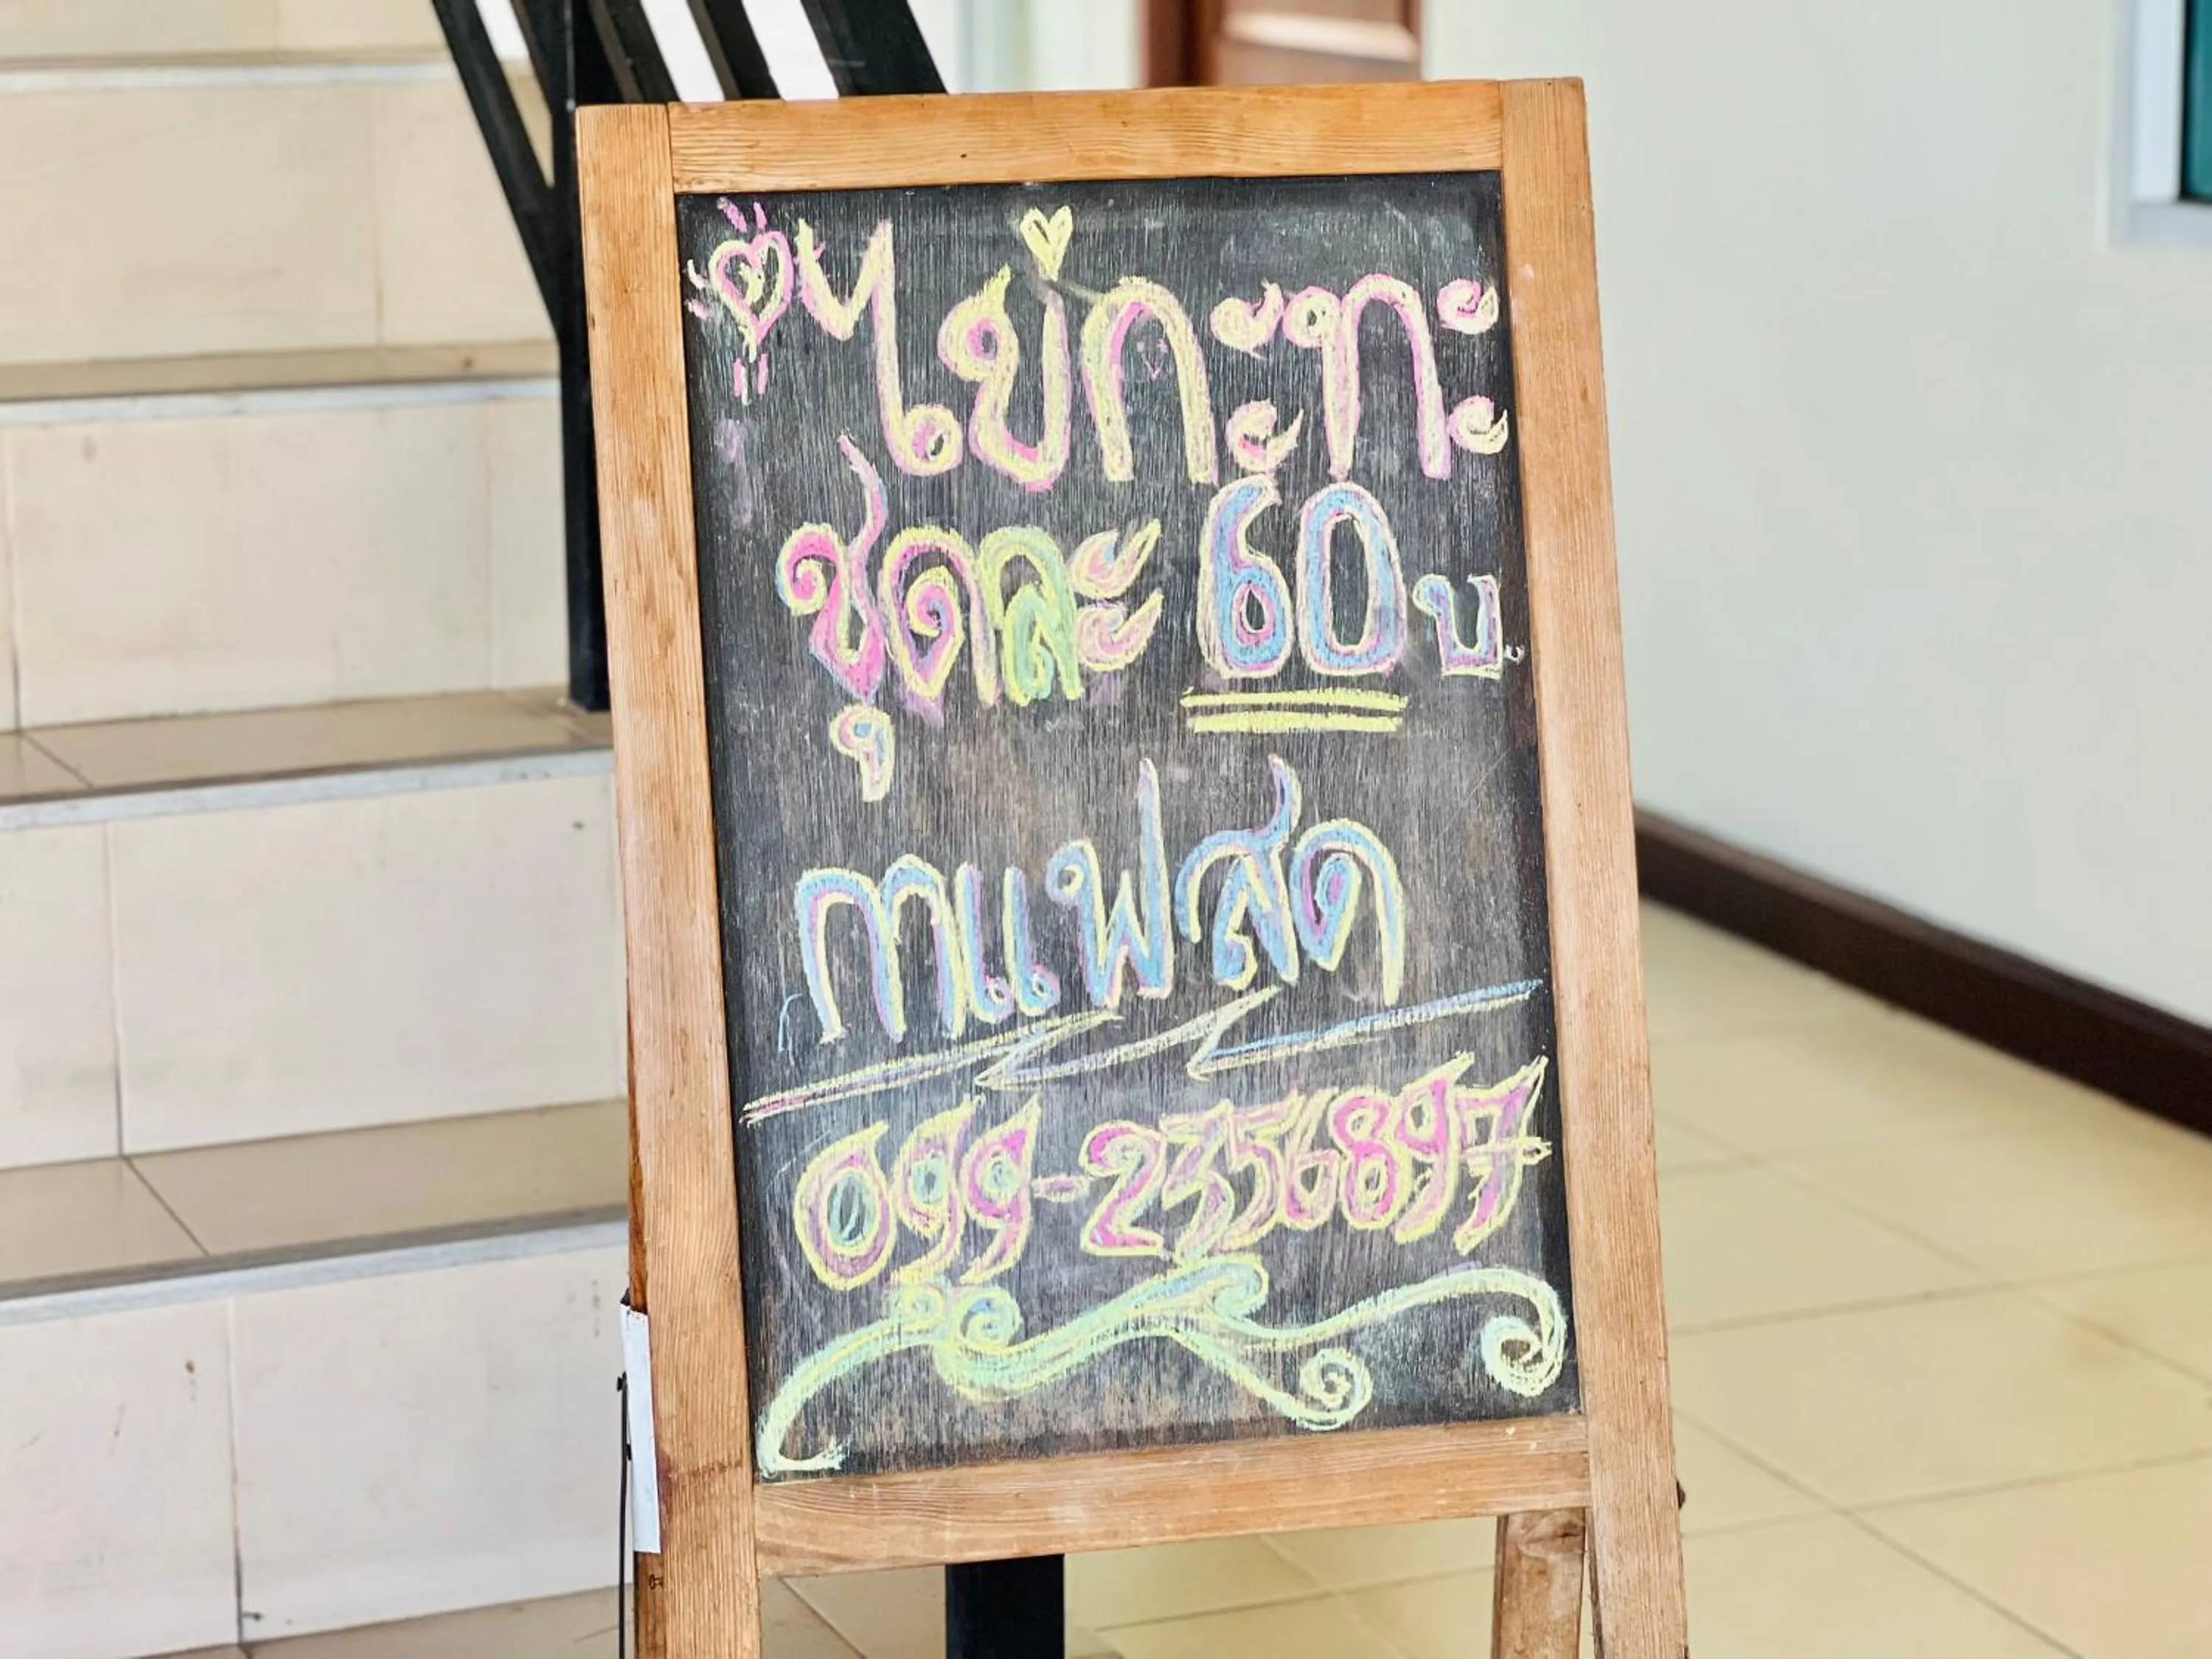 ไข่กะทะ
ชุดละ 60 บ.
กาแฟสด
099-2356897